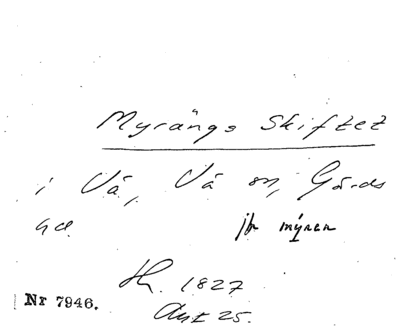 Myrängs Skiftet
i Vä, Vä sn, Gärds
hd. jfr myren
Sk. 1827
Akt 25.
Nr 7946.